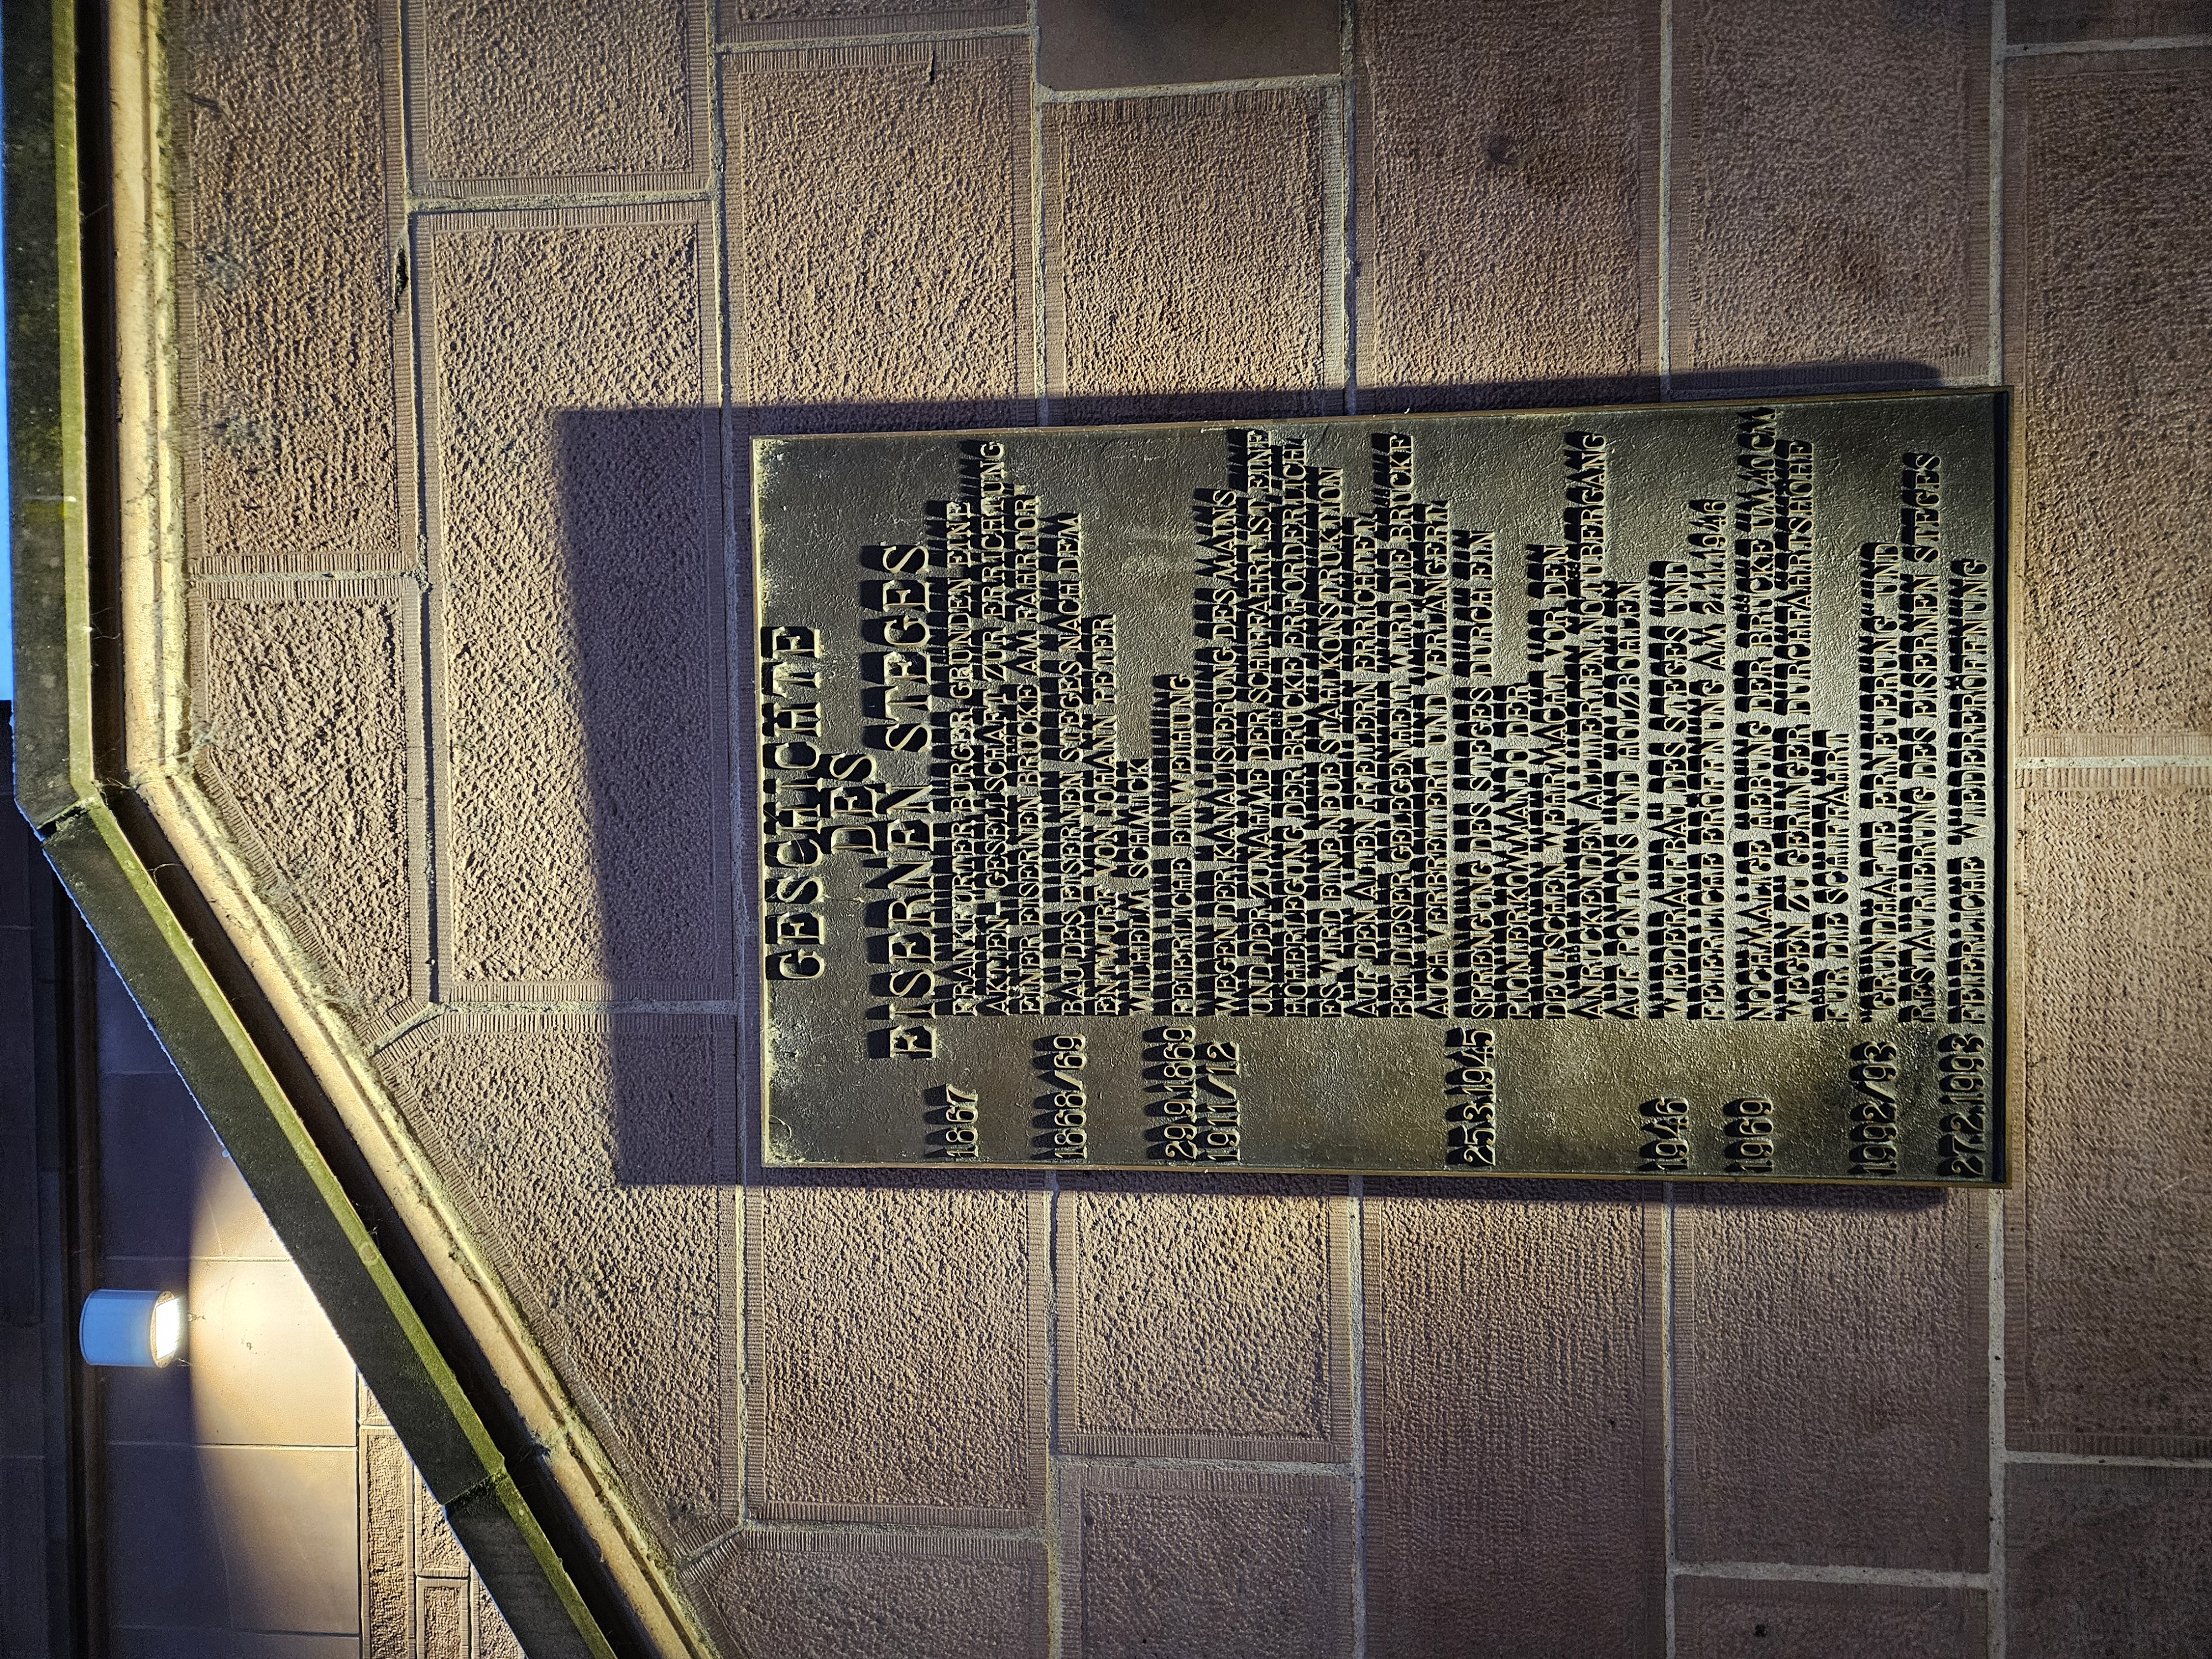 GESCHICHTE
DES
EISERNEN STEGES
1867 FRANKFURTER BÜRGER GRÜNDEN EINE
AKTIEN - GESELLSCHAFT ZUR ERRICHTUNG
EINER EISERNEN BRÜCKE AM FAHRTOR
1868/69 BAU DES EISERNEN STEGES NACH DEM
ENTWURF VON JOHANN PETER
WILHELM SCHMICK
29.9.1869 FEIERLICHE EINWEIHUNG
1911/12 WEGEN DER KANALISIERUNG DES MAINS
UND DER ZUNAHME DER SCHIFFAHRT IS EINE
HÖHERLEGUNG DER BRÜCKE ERFORDERLICH
ES WIRD EINE NEUE STAHLKONSTRUKTION
AUF DEN ALTEN PFEILERN ERRICHTET.
BEI DIESER GELEGENHEIT WIRD DIE BRÜCKE
AUCH VERBREITERT UND VERLÄNGERT
25.3.1945 SPRENGUNG DES STEGES DURCH EIN
PIONIERKOMMANDO DER
DEUTSCHEN WEHRMACHT VOR DEN
ANRÜCKENDEN ALLIIERTEN, NOTÜBERGANG
AUF PONTONS UND HOLZBOHLEN
1946 WIEDERAUFBAU DES STEGES UND
FEIERLICHE ERÖFFNUNG AM 2.11.1946
1969 NOCHMALIGE HEBUNG DER BRÜCKE UM 40 CM
WEGEN ZU GERINGER DURCHFAHRTSHÖHE
FÜR DIE SCHIFFAHRT
1992/93 GRUNDHAFTE ERNEUERUNG UND
RESTAURIERUNG DES EISERNEN STEGES
27.2.1993 FEIERLICHE WIEDERERÖFFNUNG